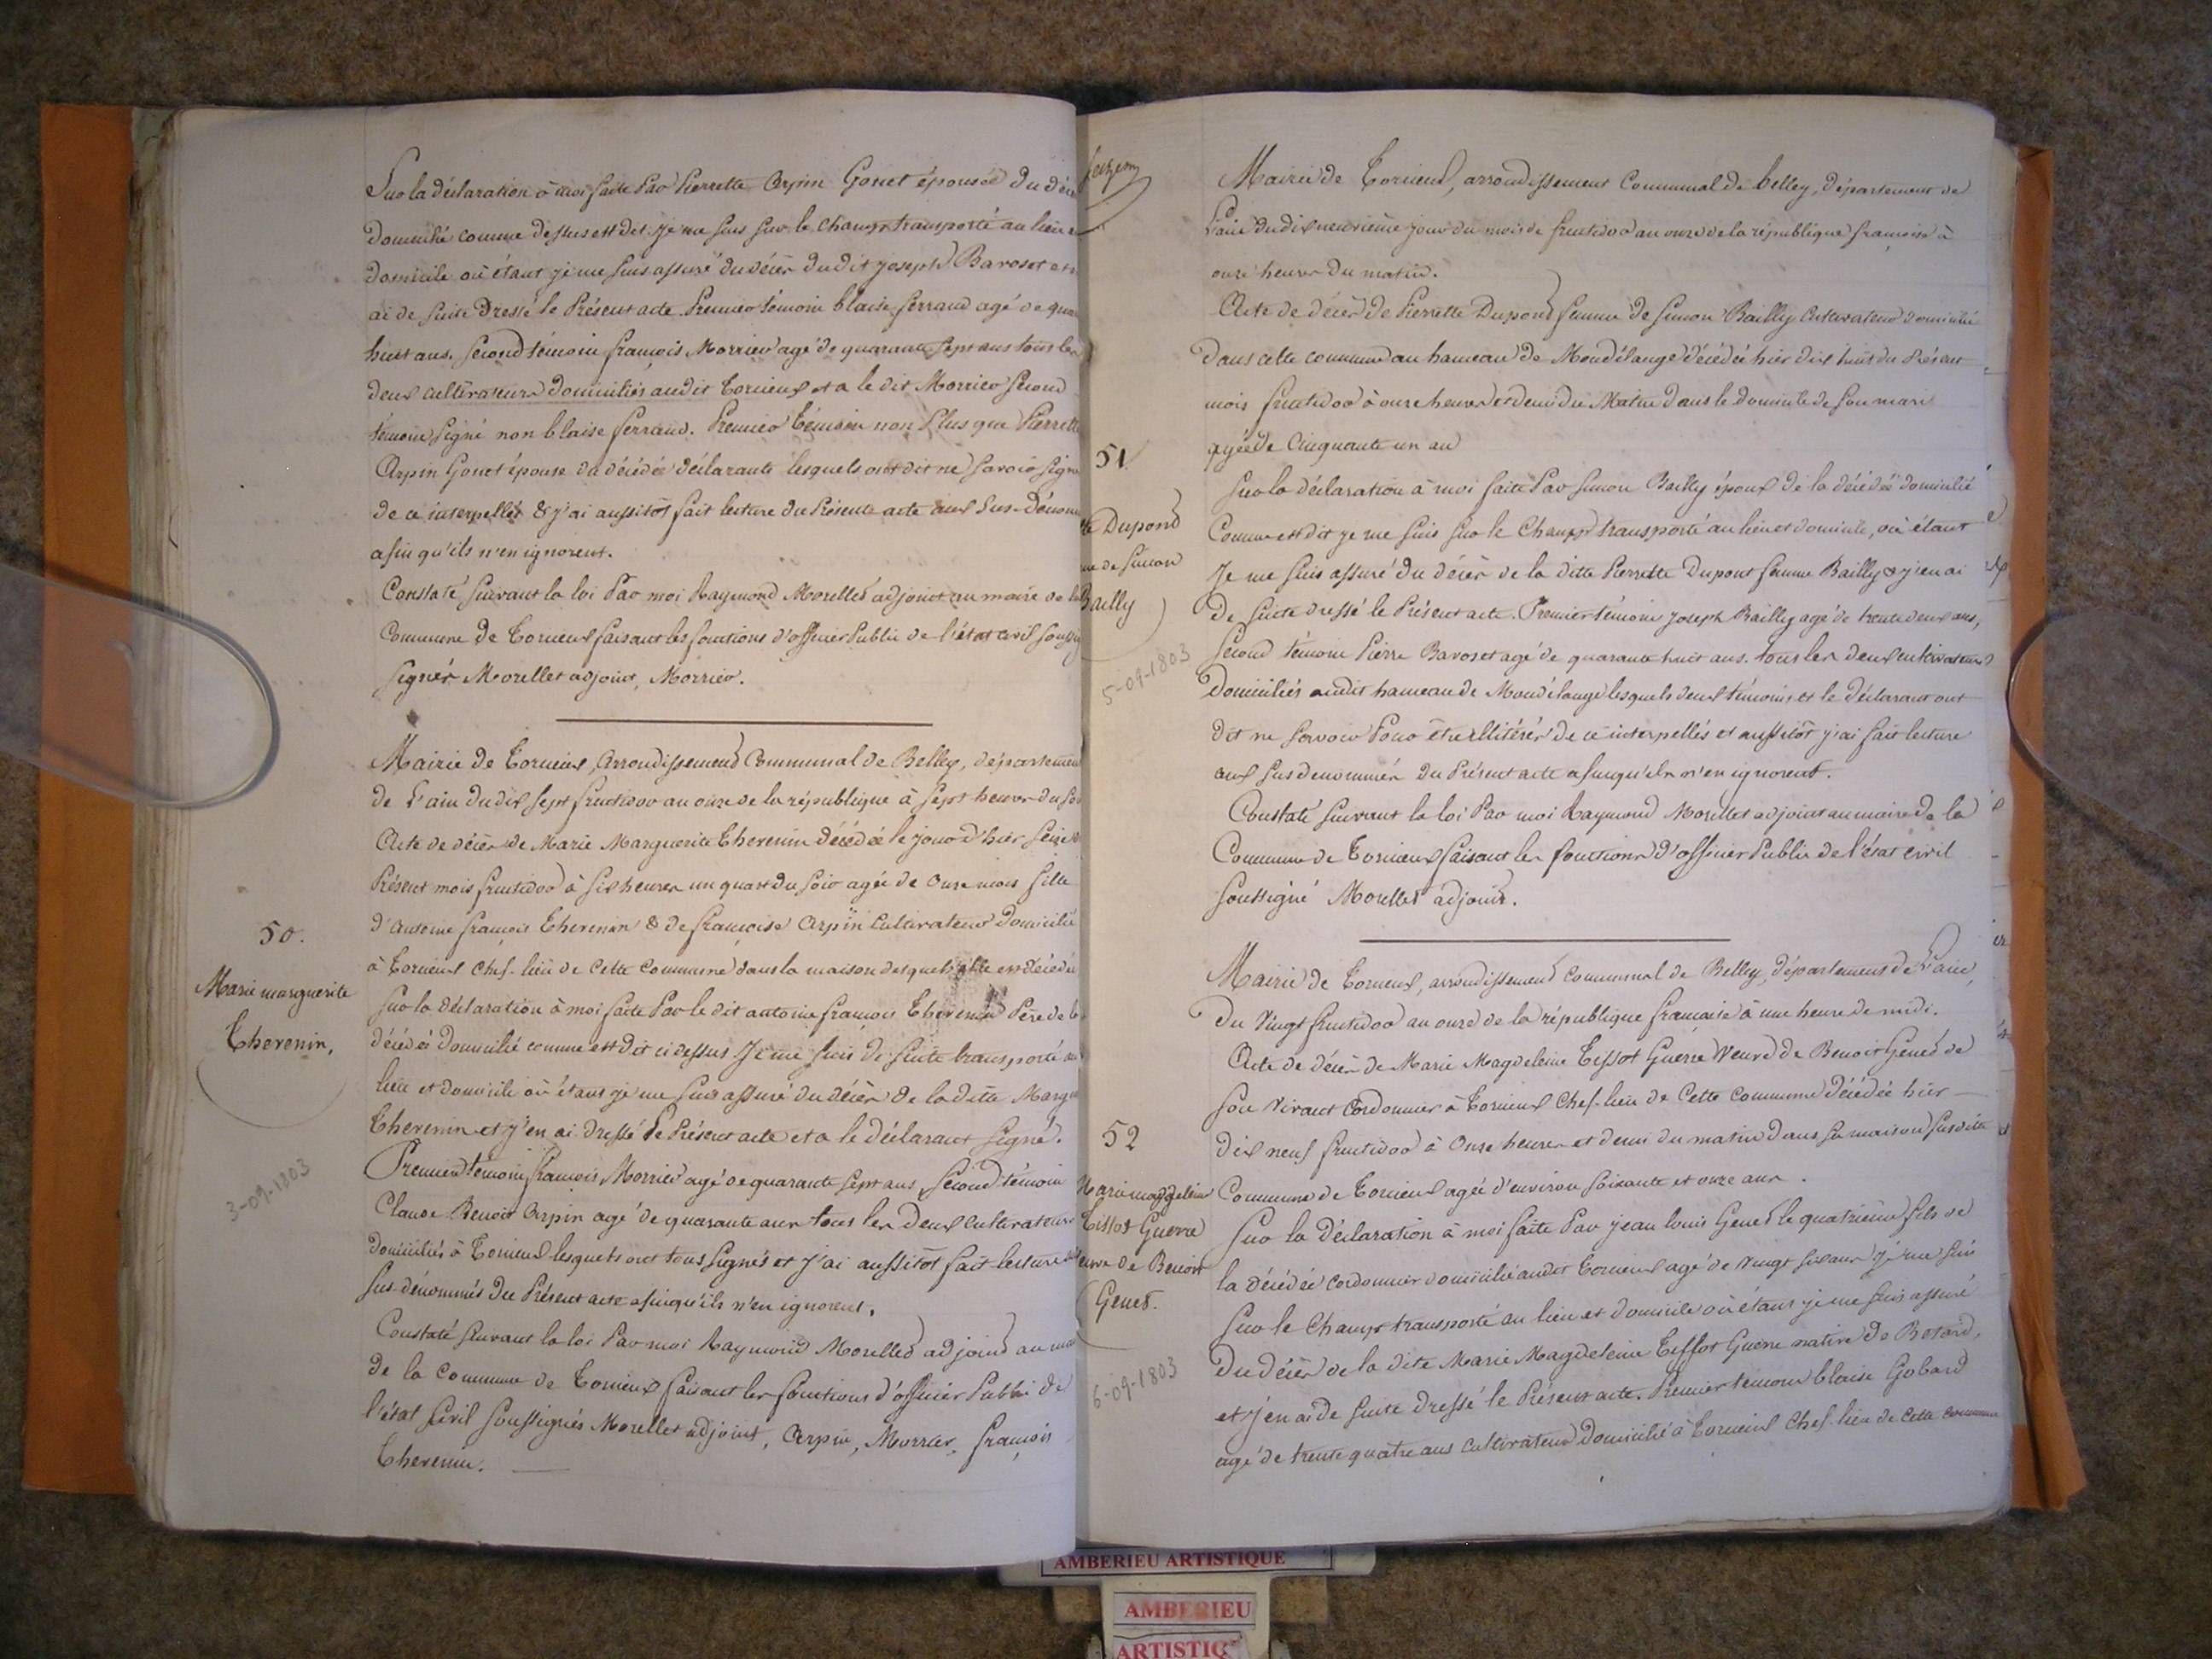 Sur la déclaration à moi faite Par Pierrette Arpin Gonet épouse du
domicilié comme dessus est dit. je me suis sur le champ transporté au lieu
domicile où étant je me suis assuré du décès dudit joseph Baroset
ai de suite Dressé le Présent acte Premier témoin blaise ferrand agé de
huit ans. Second témoin françois Morrier agé de quarante sept ans tous les
deux cultivateurs domiciliés audit Torcieux et a le dit Morrier Second
témoin signé non blaise ferrand. Premier témoin non Plus que Pierrette
Arpin Gonet épouse du décédé déclarante lesquels ont dit ne Savoir signer
de ce interpellés & j'ai aussitôt fait lecture du Présente acte aux Sus-
afin qu'ils n'en ignorent.
Constaté Suivant la loi Par moi Raymond Morellet adjoint au maire de la
Commune de Torcieux faisant les fonctions d'officier Public de l'état civil
Signés Morellet adjoint, Morrier.
Mairie de Torcieux, Arrondissement Communal de Belley, département
de l'ain du dix sept fructidor an onze de la république à sept heures du
Acte de décès de Marie Marguerite Thevenin décédée le jour d'hier Seize
Présent mois fructidor à six heures un quart du soir agée de onze mois fille
50.
d'antoine françois Thevenin & de françoise Arpin Cultivateur domicilié
à Torcieux chef-lieu de Cette Commune dans la maison desquels elle est décédée
Marie marguerite
Thevenin,
Sur la déclaration à moi faite Par le dit antoine françois Thevenin Père de la
décédée domicilié comme est dit ci dessus Je me suis de suite transporté au
lieu et domicile où étant je me suis assuré du décès de la dite
Thevenin et j'en ai dressé le Présent acte et a le déclarant signé.
3-09-1803
Premier témoin françois Morrier agé de quarante sept ans, Second témoin
Claude Benoit Arpin agé de quarante ans tous les deux cultivateurs
domiciliés à Torcieux lesquels ont tous signés et j'ai aussitôt fait lecture
sus-dénommés du Présent acte afin qu'ils n'en ignorent.
Constaté suivant la loi Par moi Raymond Morellet adjoint au
de la Commune de Torcieux faisant les fonctions d'officier Public de
l'état Sivil Soussignés Morellet adjoint, Arpin, Morrier, françois
Thevenin.
Mairie de Torcieux, arrondissement Communal de belley, département de
l'ain du dix neuvième jour du mois de fructidor an onze de la république françoise à
onze heures du matin.
Acte de décès de Pierrette Dupond femme de Simon Bailly Cultivateur domicilié
dans cette commune au hameau de Mondélange décédée hier dix huit du Présent
mois fructidor à onze heures et demi du Matin Dans le domicile de son mari
agée de Cinquante un an
51.
Sur la déclaration à moi faite Par Simon Bailly époux de la décédée domicilié
Dupond
de Simon
Bailly
5-09-1803
Comme est dit je me suis sur le Champ transporté au lieu et domicile, où étant
Je me suis assuré du décès de la ditte Pierrette Dupont femme Bailly & j'en ai
de suite dressé le Présent acte. Premier témoin joseph Bailly agé de trente deux ans,
Second témoin Pierre Baroset agé de quarante huit ans. tous les deux cultivateurs
Domiciliés audit hameau de Mondélange lesquels deux témoins et le déclarant ont
dit ne savoir Pour être illitérés de ce interpellés et aussitôt j'ai fait lecture
aux sus denommés du Présent acte afin qu'ils n'en ignorent.
Constaté suivant la loi Par moi Raymond Morellet adjoint au maire de la
Commune de Torcieux faisant les fonctions d'officier Public de l'état civil
Soussigné Morellet adjoint.
Mairie de Torcieux, arrondissement communal de Belley, département de l'ain,
du Vingt fructidor an onze de la république française à une heure de midi.
Acte de décès de Marie Magdeleine Tissot Guerre Veuve de Benoit Genet de
son vivant Cordonnier à Torcieux Chef-lieu de Cette Commune décédée hier
52
dix neuf fructidor à Onze heures et demi du matin Dans sa maison susditte
Marie magdeleine
Tissot Guerre
veuve de Benoit
Genet.
6-09-1803
Commune de Torcieux agée d'environ soixante et onze ans.
Sur la déclaration à moi faite Par jean louis Genet le quatrième fils de
la décédée cordonnier domicilié audit Torcieux agé de vingt six ans je me suis
Sur le Champ transporté au lieu et domicile où étant je me suis assuré
du décès de la dite Marie Magdeleine Tissot Guerre native de
et j'en ai de suite dressé le Présent acte. Premier témoin blaise Gobard
agé de trente quatre ans cultivateur domicilié à Torcieux Chef-lieu de Cette commune
AMBERIEU ARTISTIQUE
AMBERIEU
ARTISTIQ